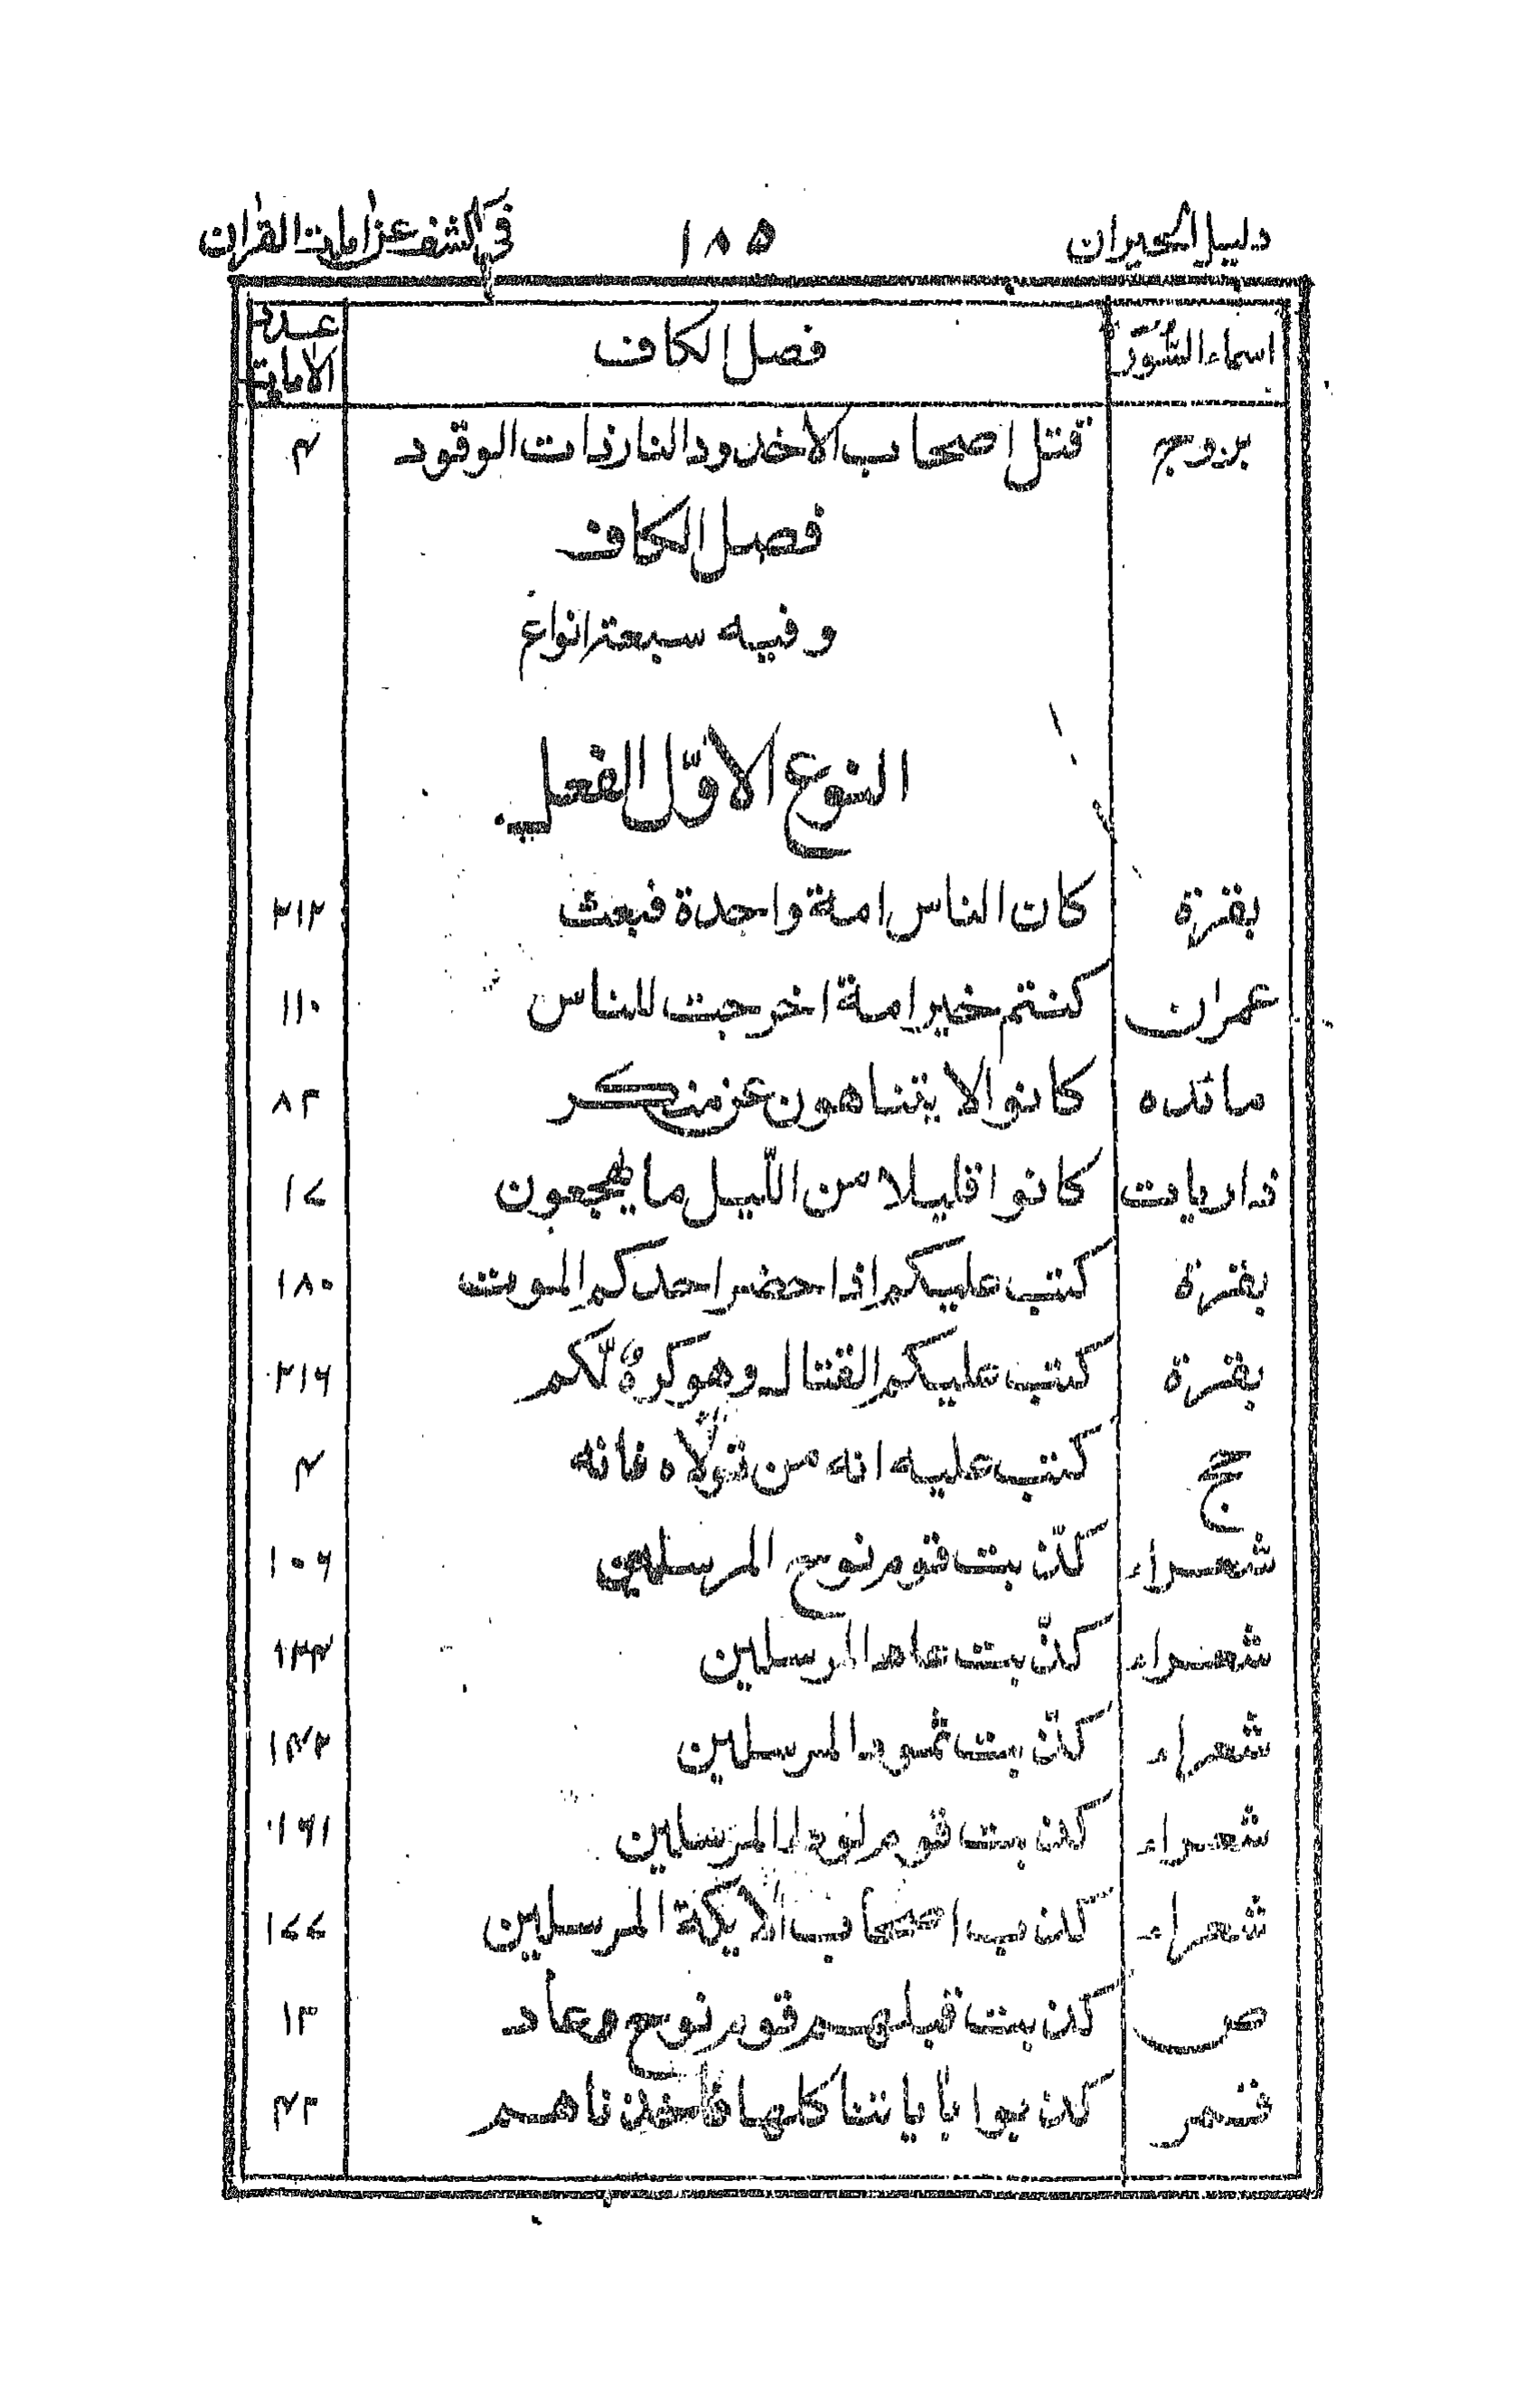 دليل الحيران ١٨٥ في الكشف عن ايات القران
اسماء السُّوَر فصل الكاف عدد الايات
بروج قتل اصحاب الاخدود النار ذات الوقود ۴
فصل الكاف
و فيه سبعة انواع
النوع الاوّل الفعل
بقرة كان الناس امة واحدة فبعث ۲۱۲
عمران كنتم خير امة اخرجت للناس ۱۱۰
مائده كانوا لا يتناهون عن منكر ۸۲
ذاريات كانوا قليلا من اللّيل ما يهجعون ۱۷
بقرة كتب عليكم اذا حضر احدكم الموت ۱۸۰
بقرة كتب عليكم القتال وهو كرهٌ لّكم ۲۱۶
حج كتب عليه انه من تولّاه فانه ۴
شعراء كذّبت قوم نوح المرسلين ۱۰۶
شعراء كذّبت عاد المرسلين ۱۲۴
شعراء كذّبت ثمود المرسلين ۱۴۲
شعراء كذبت قوم لوط المرسلين ۱۶۱
شعراء كذب اصحاب الايكة المرسلين ۱۷۷
ص كذبت قبلهم قوم نوح وعاد ۱۲
قمر كذبوا باياتنا كلها فاخذناهم ۴۲